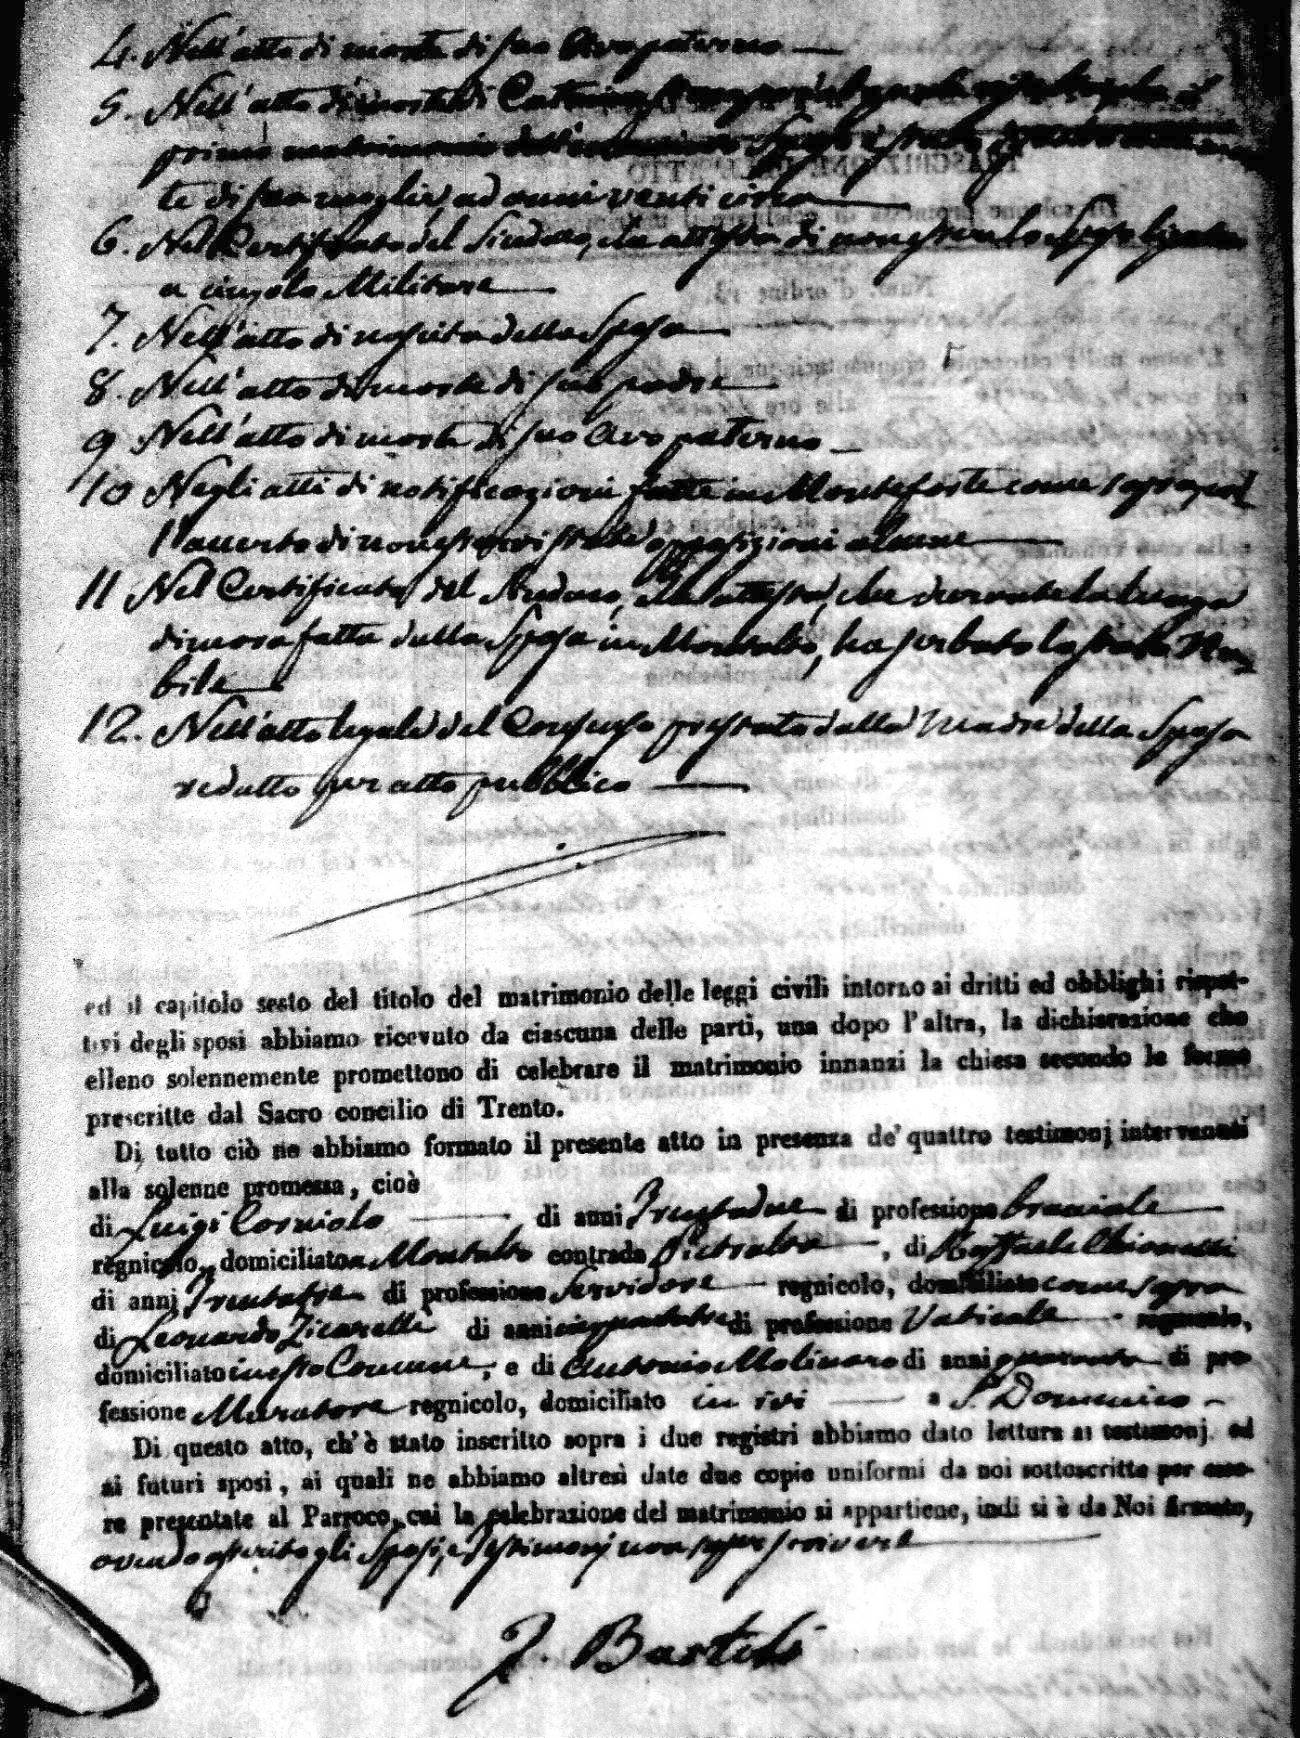 4. Nell'atto di morte di suo Avo paterno
5. Nell'atto di morte di Caterina
primo matrimonio dell' Sposo è stato
te di sua moglie ad anni venti circa
6. Nel Certificato del Sindaco, che attesta di non essere lo Sposo ligato
a cingolo Militare
7. Nell'atto di nascita della Sposa
8. Nell'atto di morte di suo padre
9 Nell'atto di morte di suo Avo paterno
10 Negli atti di notificazioni fatte in Monteforte come sopra, col
l'accerto di non esservi state opposizioni alcune
11 Nel Certificato del Sindaco, che attesta, che durante la lunga
dimora fatta dalla Sposa in Montalto, ha serbato lo stato Nu
bile
12. Nell'atto legale del Consenso prestato dalla Madre della Sposa
redatto per atto pubblico
ed il capitolo sesto del titolo del matrimonio delle leggi civili intorno ai dritti ed obblighi rispet-
tivi degli sposi abbiamo ricevuto da ciascuna delle parti, una dopo l'altra, la dichiarazione che
elleno solennemente promettono di celebrare il matrimonio innanzi la chiesa secondo le forme
prescritte dal Sacro concilio di Trento.
Di tutto ciò ne abbiamo formato il presente atto in presenza de' quattro testimonj intervenuti
alla solenne promessa, cioè
di Luigi Corniolo di anni Trentadue di professione bracciale
regnicolo, domiciliato a Montalto contrada Pietralta, di Raffaele Chionetti
di anni Trentatre di professione Servidore regnicolo, domiciliato come sopra
di Leonardo Zicarelli di anni cinquantatre di professione Vaticale regnicolo,
domiciliato in esto Comune, e di Antonio Molinaro di anni quaranta di pro
fessione Muratore regnicolo, domiciliato in ivi a S. Domenico
Di questo atto, ch'è stato inscritto sopra i due registri abbiamo dato lettura ai testimonj ed
ai futuri sposi, ai quali ne abbiamo altresì date due copie uniformi da noi sottoscritte per esse-
re presentate al Parroco, cui la celebrazione del matrimonio si appartiene, indi si è da Noi firmato,
avendo asserito gli Sposi, e Testimonj non saper scrivere